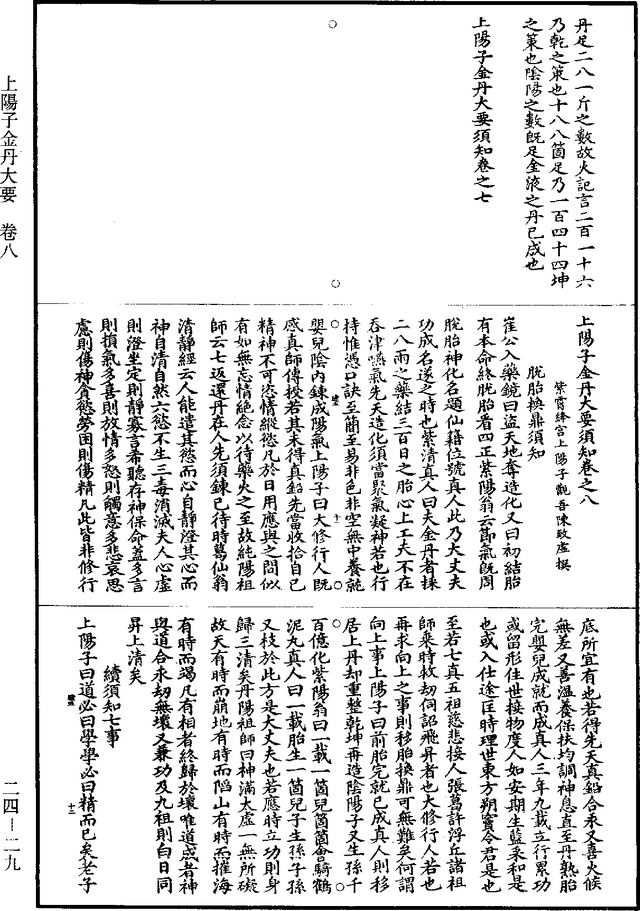 上陽子金丹大要　卷八
丹足二八一斤之數故火記言二百一十六
乃乾之策也十八八箇足乃一百四十四坤
之策也陰陽之數既足金液之丹已成也
上陽子金丹大要須知卷之七
上陽子金丹大要須知卷之八
紫霄絳宮上陽子觀吾陳致虛撰
脫胎換鼎須知
崔公入藥鏡曰盜天地奪造化又曰初結胎
有本命終脫胎看四正紫陽翁云節氣既周
脫胎神化名題仙籍位號真人此乃大丈夫
功成名遂之時也紫清真人曰夫金丹者採
二八兩之藥結三百日之胎心上工夫不在
吞津嚥氣先天造化須當聚氣凝神若也行
持惟憑口訣至簡至易非色非空無中養就
嬰兒陰內鍊成陽氣上陽子曰大修行人既
感真師傳授若其未得真鉛先當收拾自己
精神不可恣情縱慾凡於日用應與之間似
有如無忘情絕念以待藥火之至故純陽祖
師云七返還丹在人先須鍊已待時葛仙翁
清靜經云人能遣其慾而心自靜澄其心而
神自清自然六慾不生三毒消滅夫人心虛
則澄坐定則靜寡言希聽存神保命蓋多言
則損氣多喜則放情多怒則觸意多悲哀思
慮則傷神貪慾勞困則傷精凡此皆非修行
底所宜有也若得先天真鉛合汞又喜火候
無差又喜溫養保扶均調神息直至丹熟胎
完嬰兒成就而成真人三年九載立行累功
或留形住世接物度人如安期生藍采和是
也或入仕途匡時理世東方朔竇令君是也
至若七真五祖慈悲接人張葛許浮丘諸祖
師乘時救劫伺詔飛昇者也大修行人若也
再求向上之事則移胎換鼎可無難矣何謂
向上事上陽子曰前胎完就已成真人則移
居上丹却重整乾坤再造陰陽子又生孫千
百億化紫陽翁曰一載一箇兒箇箇會騎鶴
泥丸真人曰一載胎生一箇兒子生孫子孫
又枝於此方是大丈夫也若應時立功則身
歸三清矣丹陽祖師曰神滿太虛一無所礙
故天有時而崩地有時而陷山有時而摧海
有時而竭凡有相者終歸於壞唯道成者神
與道合永劫無壞又兼功及九祖則白日同
昇上清矣
續須知七事
上陽子曰道必曰學學必曰精而已矣老子
二四—二九